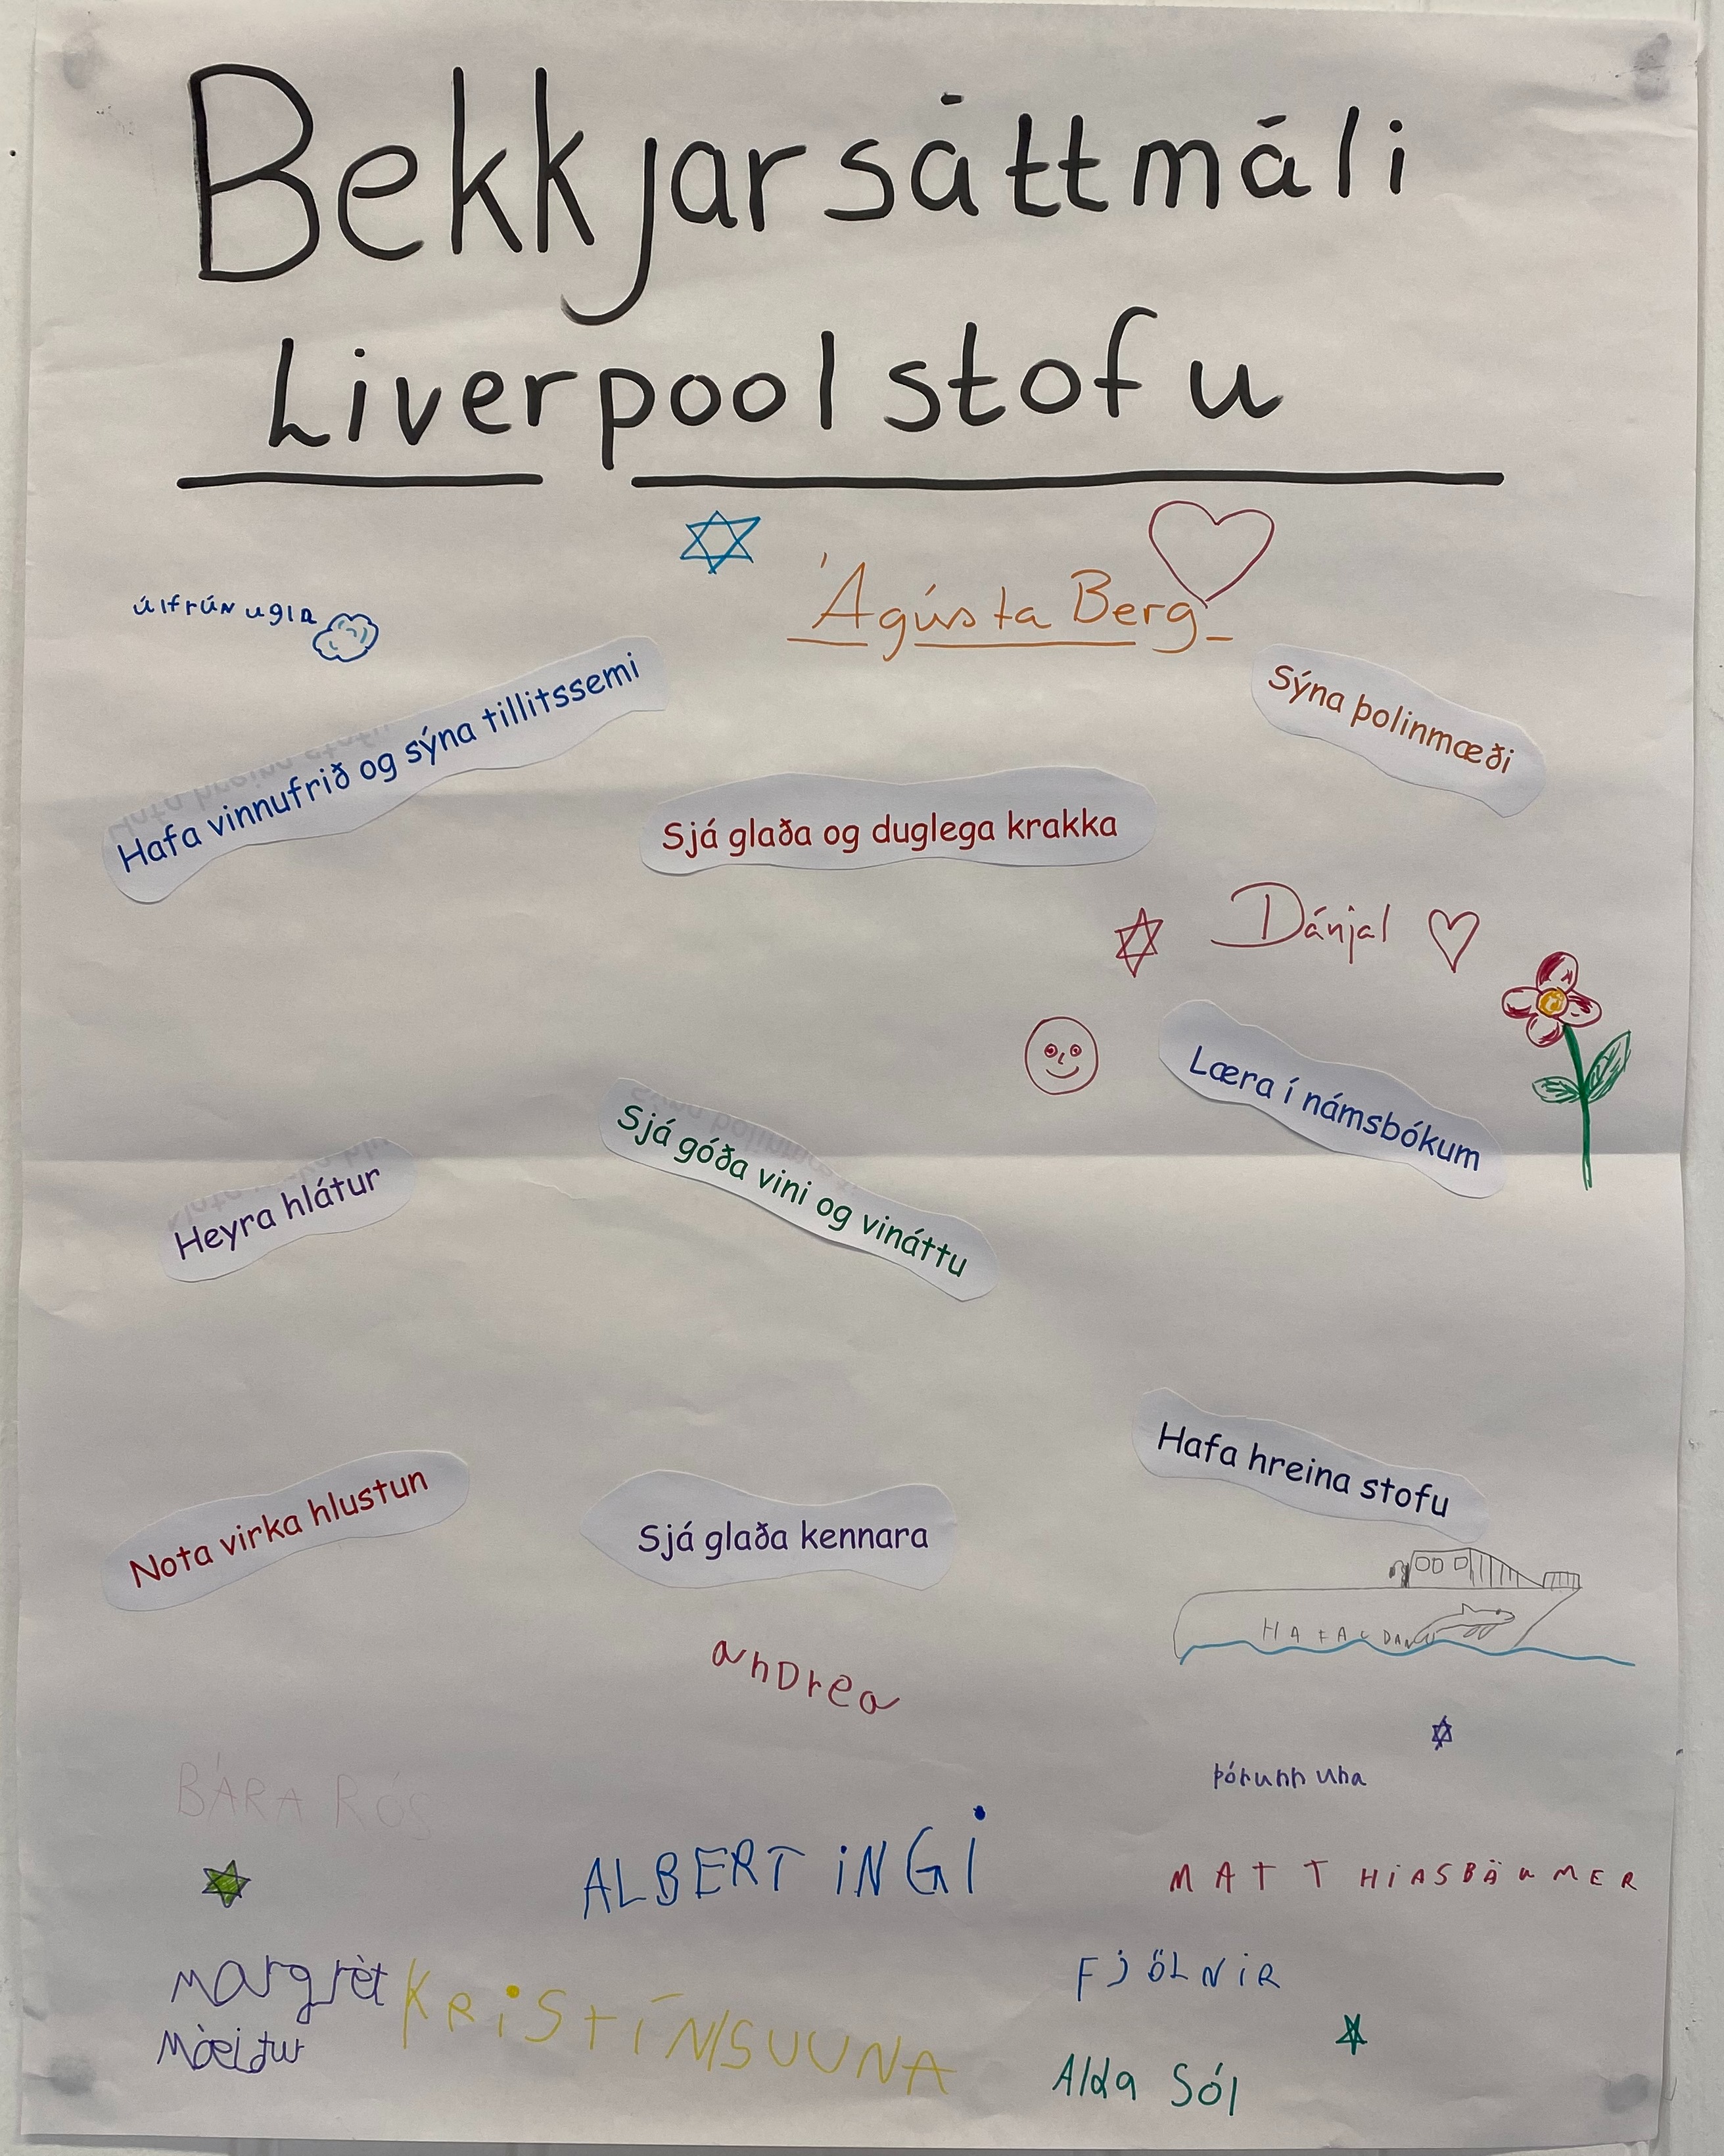 Bekkjarsáttmáli
Liverpool stofu
Ágústa Berg
úlfrún ugla
Hafa vinnufrið og sýna tillitssemi
Sýna þolinmæði
Sjá glaða og duglega krakka
Dánjal
Læra í námsbókum
Heyra hlátur
Sjá góða vini og vináttu
Hafa hreina stofu
Nota virka hlustun
Sjá glaða kennara
anDrea
þórunn una
BÁRA RÓS
ALBERT iNGi
MATTHiASBÄUMER
margrèt
KRiSTÍN
FJÖLNiR
Alda Sól